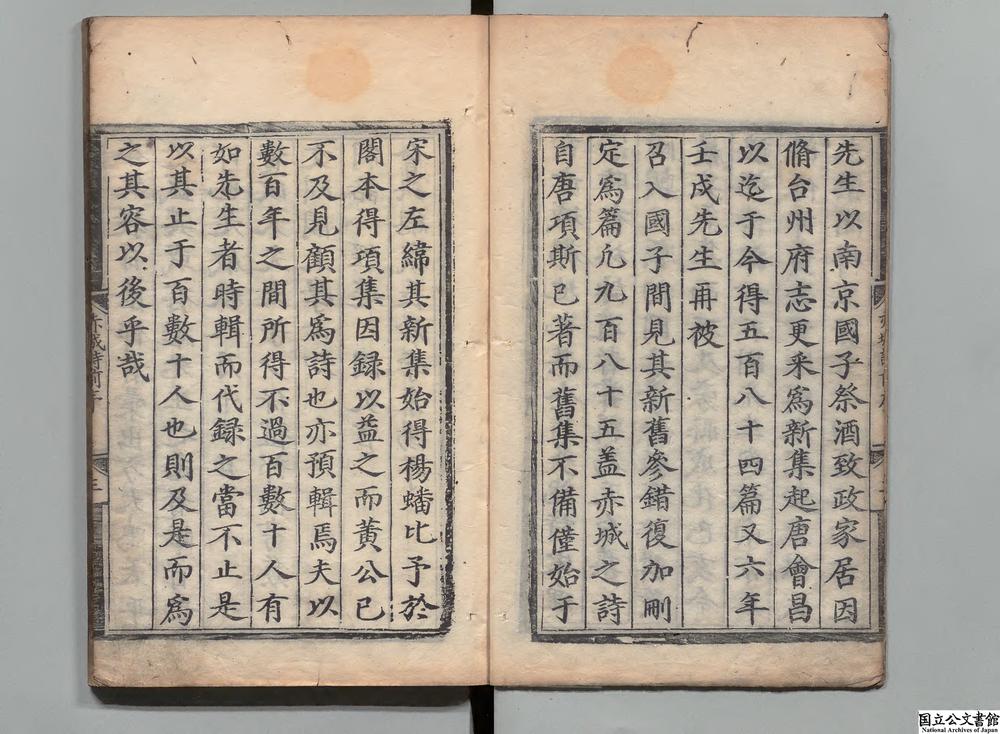 先生以南京國子祭酒致政家居因
脩台州府志更采爲新集起唐會昌
以迄于今得五百八十四篇又六年
壬戌先生再被
召入國子間見其新舊參錯復加刪
定爲篇凡九百八十五蓋赤城之詩
自唐項斯已著而舊集不備僅始于
宋之左緯其新集始得楊蟠比予於
閣本得項集因録以益之而黄公已
不及見顧其爲詩也亦預輯焉夫以
數百年之間所得不過百數十人有
如先生者時輯而代録之當不止是
以其止于百數十人也則及是而爲
之其容以後乎哉
赤城詩前序
三
国立公文書館
National Archives of Japan